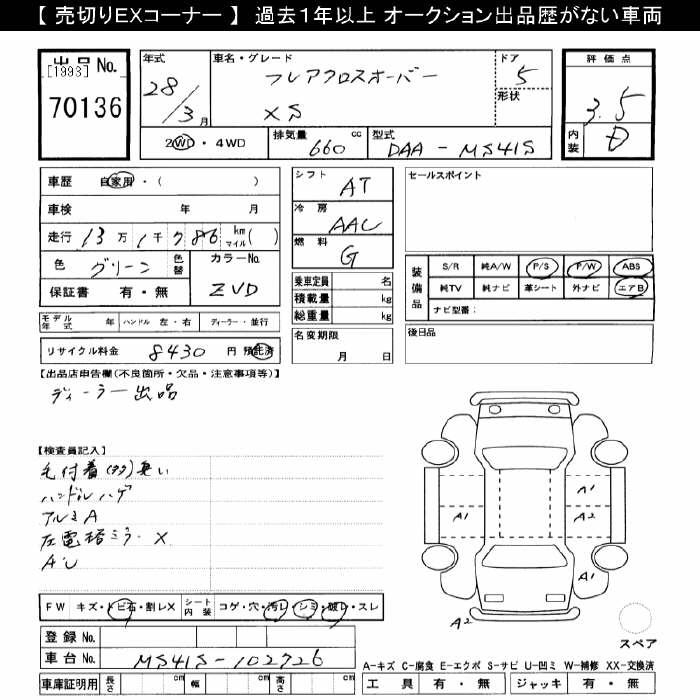 【 売切りEXコーナー 】 過去１年以上 オークション出品歴がない車両
出品 No.
[1993]
70136
年式
28/3月
車名・グレード
フレアクロスオーバー
XS
ドア
5
形状
評価点
3.5
内装
D
2WD・4WD
排気量 660 cc
型式 DAA-MS41S
車歴 自家用・( )
車検 年 月
走行 13万1千786 km マイル( )
色 グリーン 色替
カラーNo. ZVD
保証書 有・無
モデル年式 年 ハンドル 左・右 ディーラー・並行
リサイクル料金 8430 円 預託済
シフト AT
冷房 AAC
燃料 G
乗車定員 名
積載量 kg
総重量 kg
名変期限
月 日
セールスポイント
装備品
S/R 純A/W P/S P/W ABS
純TV 純ナビ 革シート 外ナビ エアB
ナビ型番：
後日品
【出品店申告欄(不良箇所・欠品・注意事項等)】
ディーラー出品
【検査員記入】
毛付着(多) 臭い
ハンドルハゲ
アルミA
左電格ミラーX
A・U
FW キズ・トビ石・割レX シート内装 コゲ・穴・汚レ・シミ・破レ・スレ
登録 No.
車台 No. MS41S-102726
車庫証明用 長さ cm 幅 cm 高さ cm
A1
A1
A2
A1
A2
スペア
A-キズ C-腐食 E-エクボ S-サビ U-凹ミ W-補修 XX-交換済
工具 有・無 ジャッキ 有・無